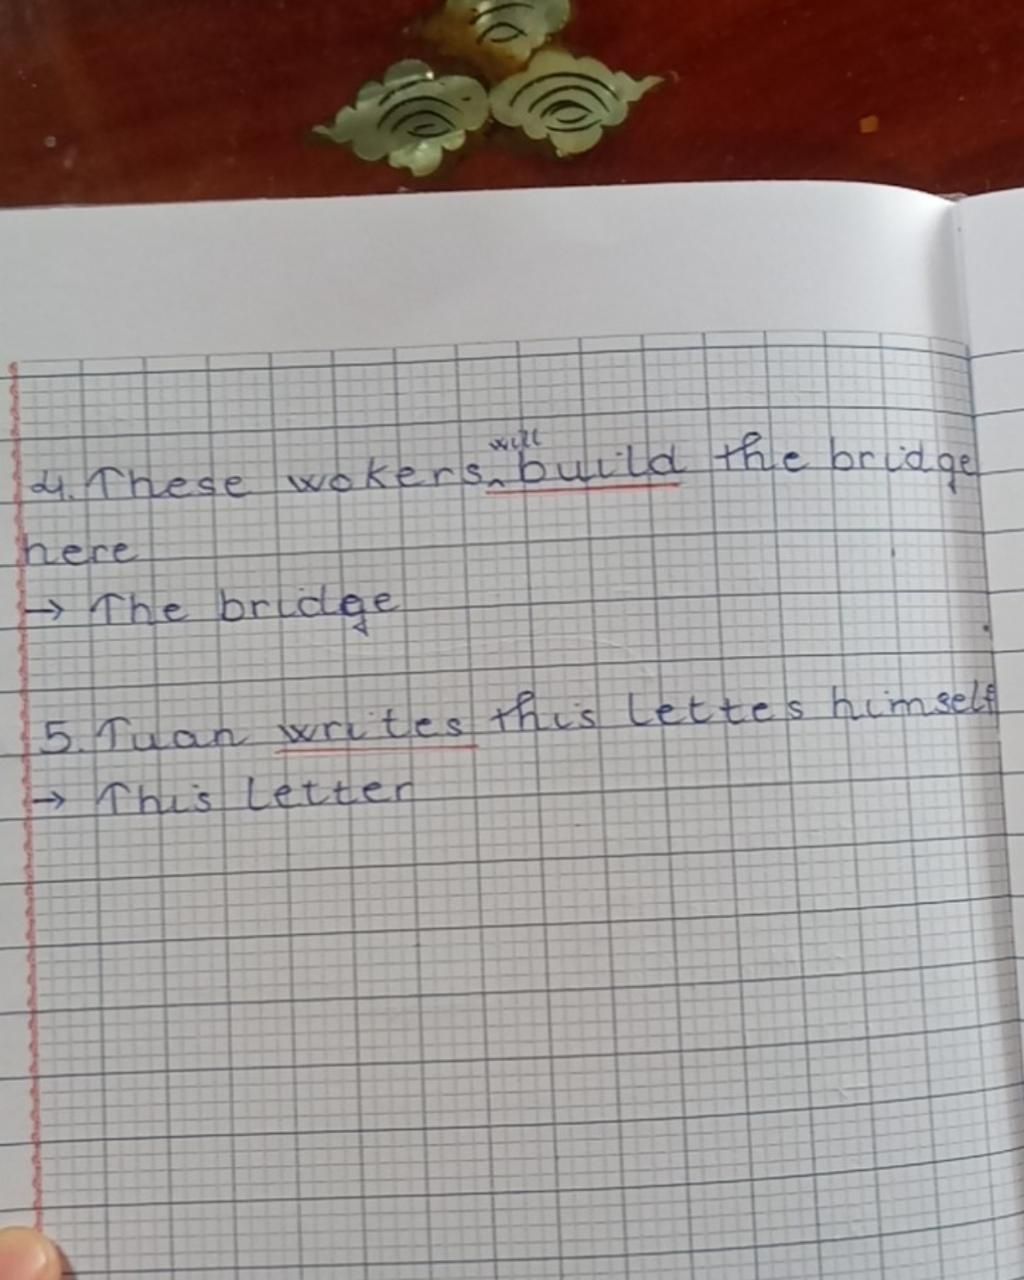 will
4. These wokers ^ build the bridge
here
→ The bridge
5. Tuan writes this lettes himself
→ This letter